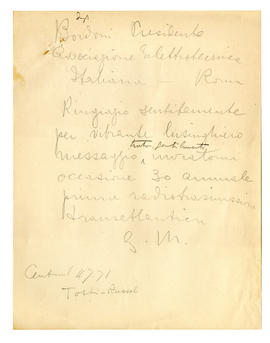 Bordoni Presidente
Associazione Elettrotecnica
Italiana - Roma
Ringrazio sentitamente
per vibrante lusinghiero
messaggio
occasione 30 annuale
prima radiotrasmissione
transatlantica
G. M.